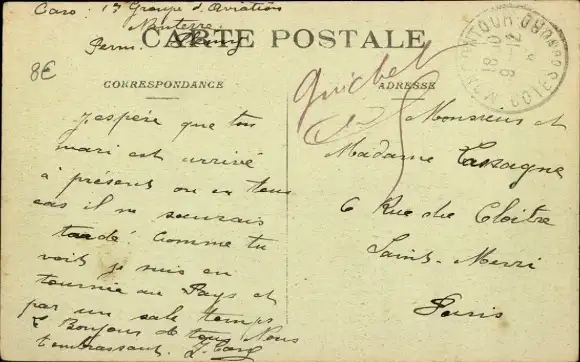 Caro : 1er Groupe d'Aviation
Nanterre
Perm.
CARTE POSTALE
8€
CORRESPONDANCE
ADRESSE
Guichet
J'espère que ton
mari est arrivé
à présent ou en tous
cas il ne saurais
tardé. Comme tu
vois je suis en
tournée au Pays et
par un sale temps
Bonjour de tous. Nous
t'embrassant.
Monsieur et
Madame
6 Rue du Cloître
Saint-Merri
Paris
18-30